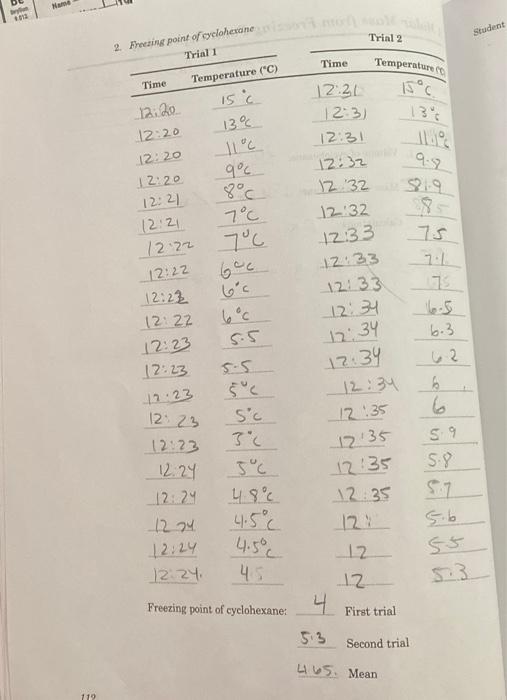 Name
Student
2. Freezing point of cyclohexane
Trial 1 Trial 2
Time Temperature (°C) Time Temperature (°C)
12:20 15°C 12:31 15°C
12:20 13°C 12:31 13°C
12:20 11°C 12:31 11.1°C
12:20 9°C 12:32 9.9
12:21 8°C 12:32 8.9
12:21 7°C 12:32 8
12:22 7°C 12:33 7.5
12:22 6°C 12:33 7.1
12:22 6°C 12:33 7
12:22 6°C 12:34 6.5
12:23 5.5 12:34 6.3
12:23 5.5 12:34 6.2
12:23 5°C 12:34 6
12:23 5°C 12:35 6
12:23 5°C 12:35 5.9
12:24 5°C 12:35 5.8
12:24 4.8°C 12:35 5.7
12:24 4.5°C 12: 5.6
12:24 4.5°C 12 5.5
12:24. 4.5 12 5.3
Freezing point of cyclohexane: 4 First trial
5.3 Second trial
4.65. Mean
112